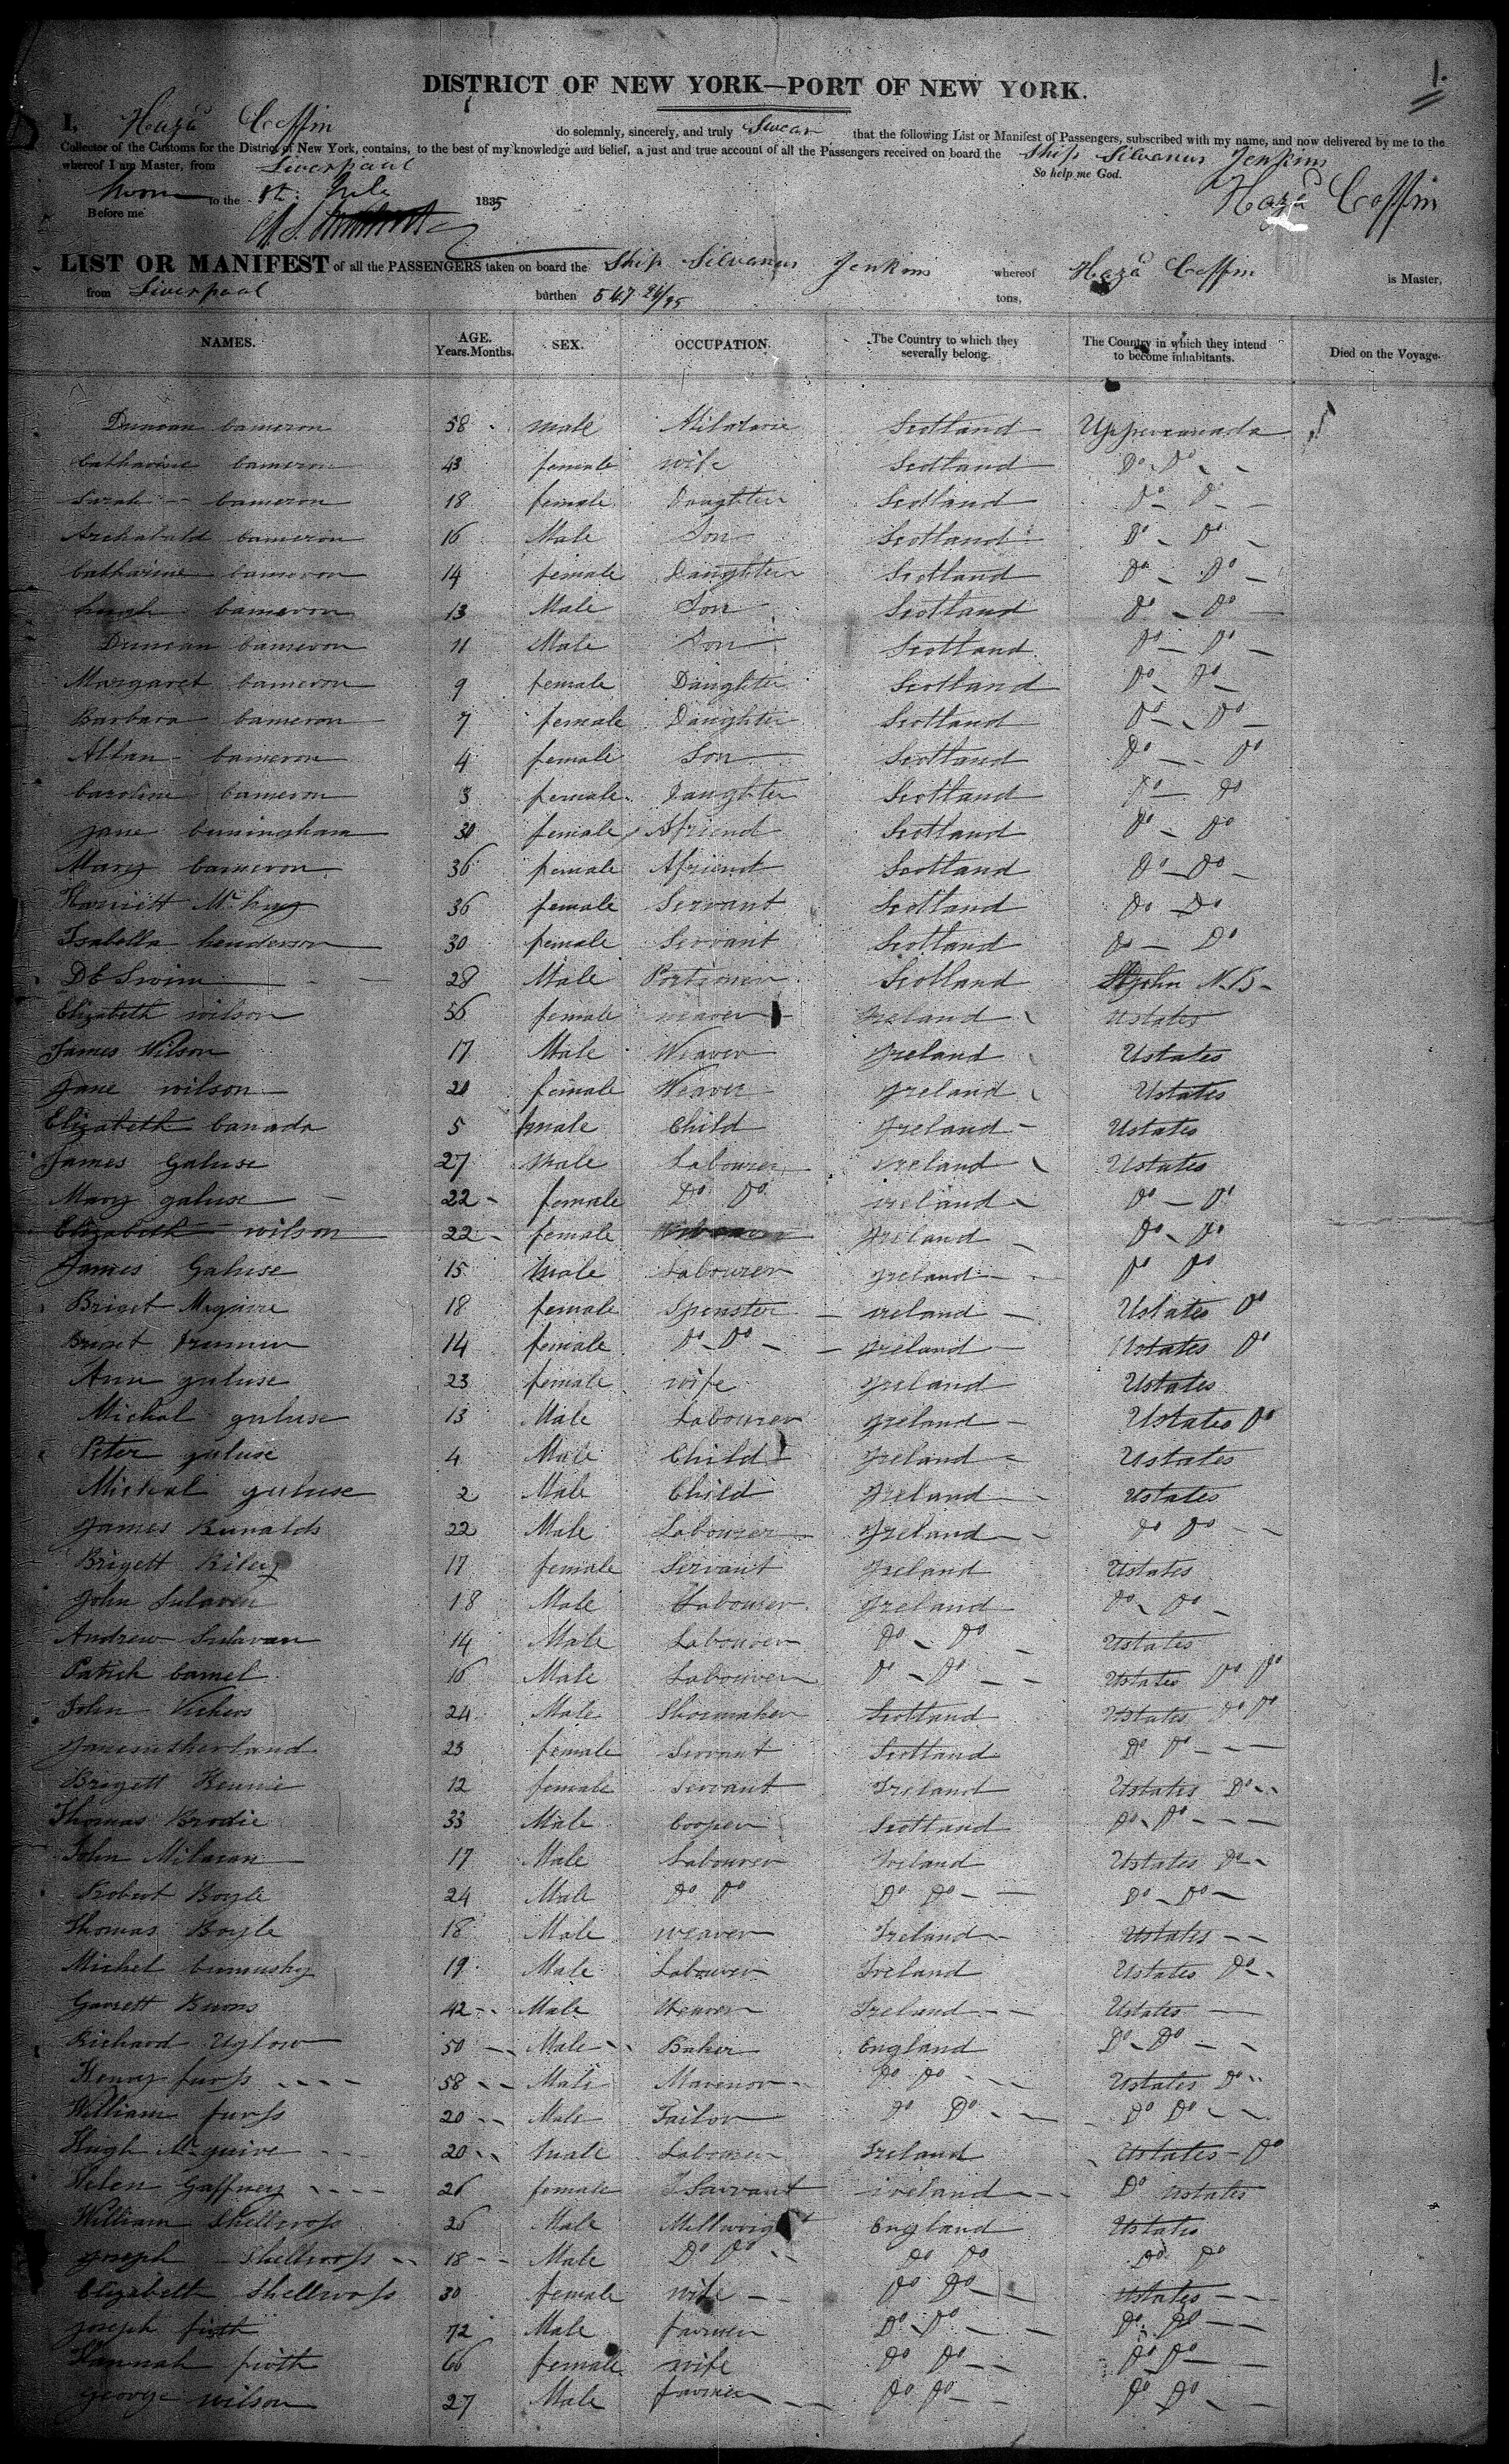 1.
DISTRICT OF NEW YORK—PORT OF NEW YORK.
I, Heza Coffin do solemnly, sincerely, and truly Swear that the following List or Manifest of Passengers, subscribed with my name, and now delivered by me to the
Collector of the Customs for the District of New York, contains, to the best of my knowledge and belief, a just and true account of all the Passengers received on board the Ship Silvanus Jenkins
whereof I am Master, from Liverpool So help me God.
to the 1835 Heza Coffin
Before me
LIST OR MANIFEST of all the PASSENGERS taken on board the Ship Silvanus Jenkins whereof Heza Coffin is Master,
from Liverpool burthen 547 26/95 tons,
NAMES. AGE. Years. Months. SEX. OCCUPATION. The Country to which they severally belong. The Country in which they intend to become inhabitants. Died on the Voyage.
Duncan Cameron 58 male Scotland Uppercanada
Catharine Cameron 43 female wife Scotland Do Do
Sarah Cameron 18 female Daughter Scotland Do Do
Archabald Cameron 16 Male Son Scotland Do Do
Catharine Cameron 14 female Daughter Scotland Do Do
hugh Cameron 13 Male Son Scotland Do Do
Duncan Cameron 11 Male Son Scotland Do Do
Margaret Cameron 9 female Daughter Scotland Do Do
Barbara Cameron 7 female Daughter Scotland Do Do
Allan Cameron 4 female Son Scotland Do Do
Caroline Cameron 3 female Daughter Scotland Do Do
Jane Cuningham 30 female Afriend Scotland Do Do
Mary Cameron 36 female Afriend Scotland Do Do
Harriett 36 female Servant Scotland Do Do
Isabella henderson 30 female Servant Scotland Do Do
28 Male Scotland St John N.B
Elizabeth wilson 56 female weaver Ireland Ustates
James Wilson 17 Male Weaver Ireland Ustates
Jane wilson 20 female Weaver Ireland Ustates
Elizabeth Canada 5 Child Ireland Ustates
James Galuse 27 Male Labourer Ireland Ustates
Mary galuse 22 female Do Do ireland Do Do
Elizabeth wilson 22 female Ireland Do Do
James Galuse 15 Male Labourer Ireland Do Do
Briget Maguire 18 female Spinster ireland Ustates Do
Briget 14 female Do Do Ireland Ustates Do
Ann galuse 23 female wife Ireland Ustates
Michal galuse 13 Male Labourer Ireland Ustates Do
Peter galuse 4 Male Child Ireland Ustates
Michal galuse 2 Male Child Ireland Ustates
James Runalds 22 Male Labourer Ireland Do Do
Brigett Riley 17 female Servant Ireland Ustates
John Sulaven 18 Male Labourer Ireland Do Do
Andrew Sulavan 14 Male Labourer Do Do Ustates
Patrick 16 Male Labourer Do Do Ustates Do Do
John Vickers 24 Male Shoemaker Scotland Ustates Do Do
Janesutherland 23 female Servant Scotland Do Do
Brigett 12 female servant Ireland Ustates Do
Thomas Brodie 33 Male Cooper Scotland Do Do
John Milaran 17 Male Labourer Ireland Ustates Do
Robert Boyle 24 Male Do Do Do Do Do Do
Thomas Boyle 18 Male weaver Ireland Ustates
Michel 19 Male Labourer Ireland Ustates Do
Garrett Burns 42 Male Weaver Ireland Ustates
Richard Uglow 50 Male Baker England Do Do
Henry furss 58 Male Do Do Ustates Do
William furss 20 Male Tailor Do Do Do Do
Hugh Mcguire 20 Male Labourer Ireland Ustates Do
Helen Gaffney 26 female ireland Do ustates
William Shellcross 26 Male Millwright England Ustates
Joseph Shellcross 18 Male Do Do Do Do Do Do
Elizabeth Shellcross 30 female wife Do Do Ustates
Joseph firth 72 Male farmer Do Do Do Do
Hannah firth 66 female wife Do Do Do Do
George wilson 27 Male farmer Do Do Do Do